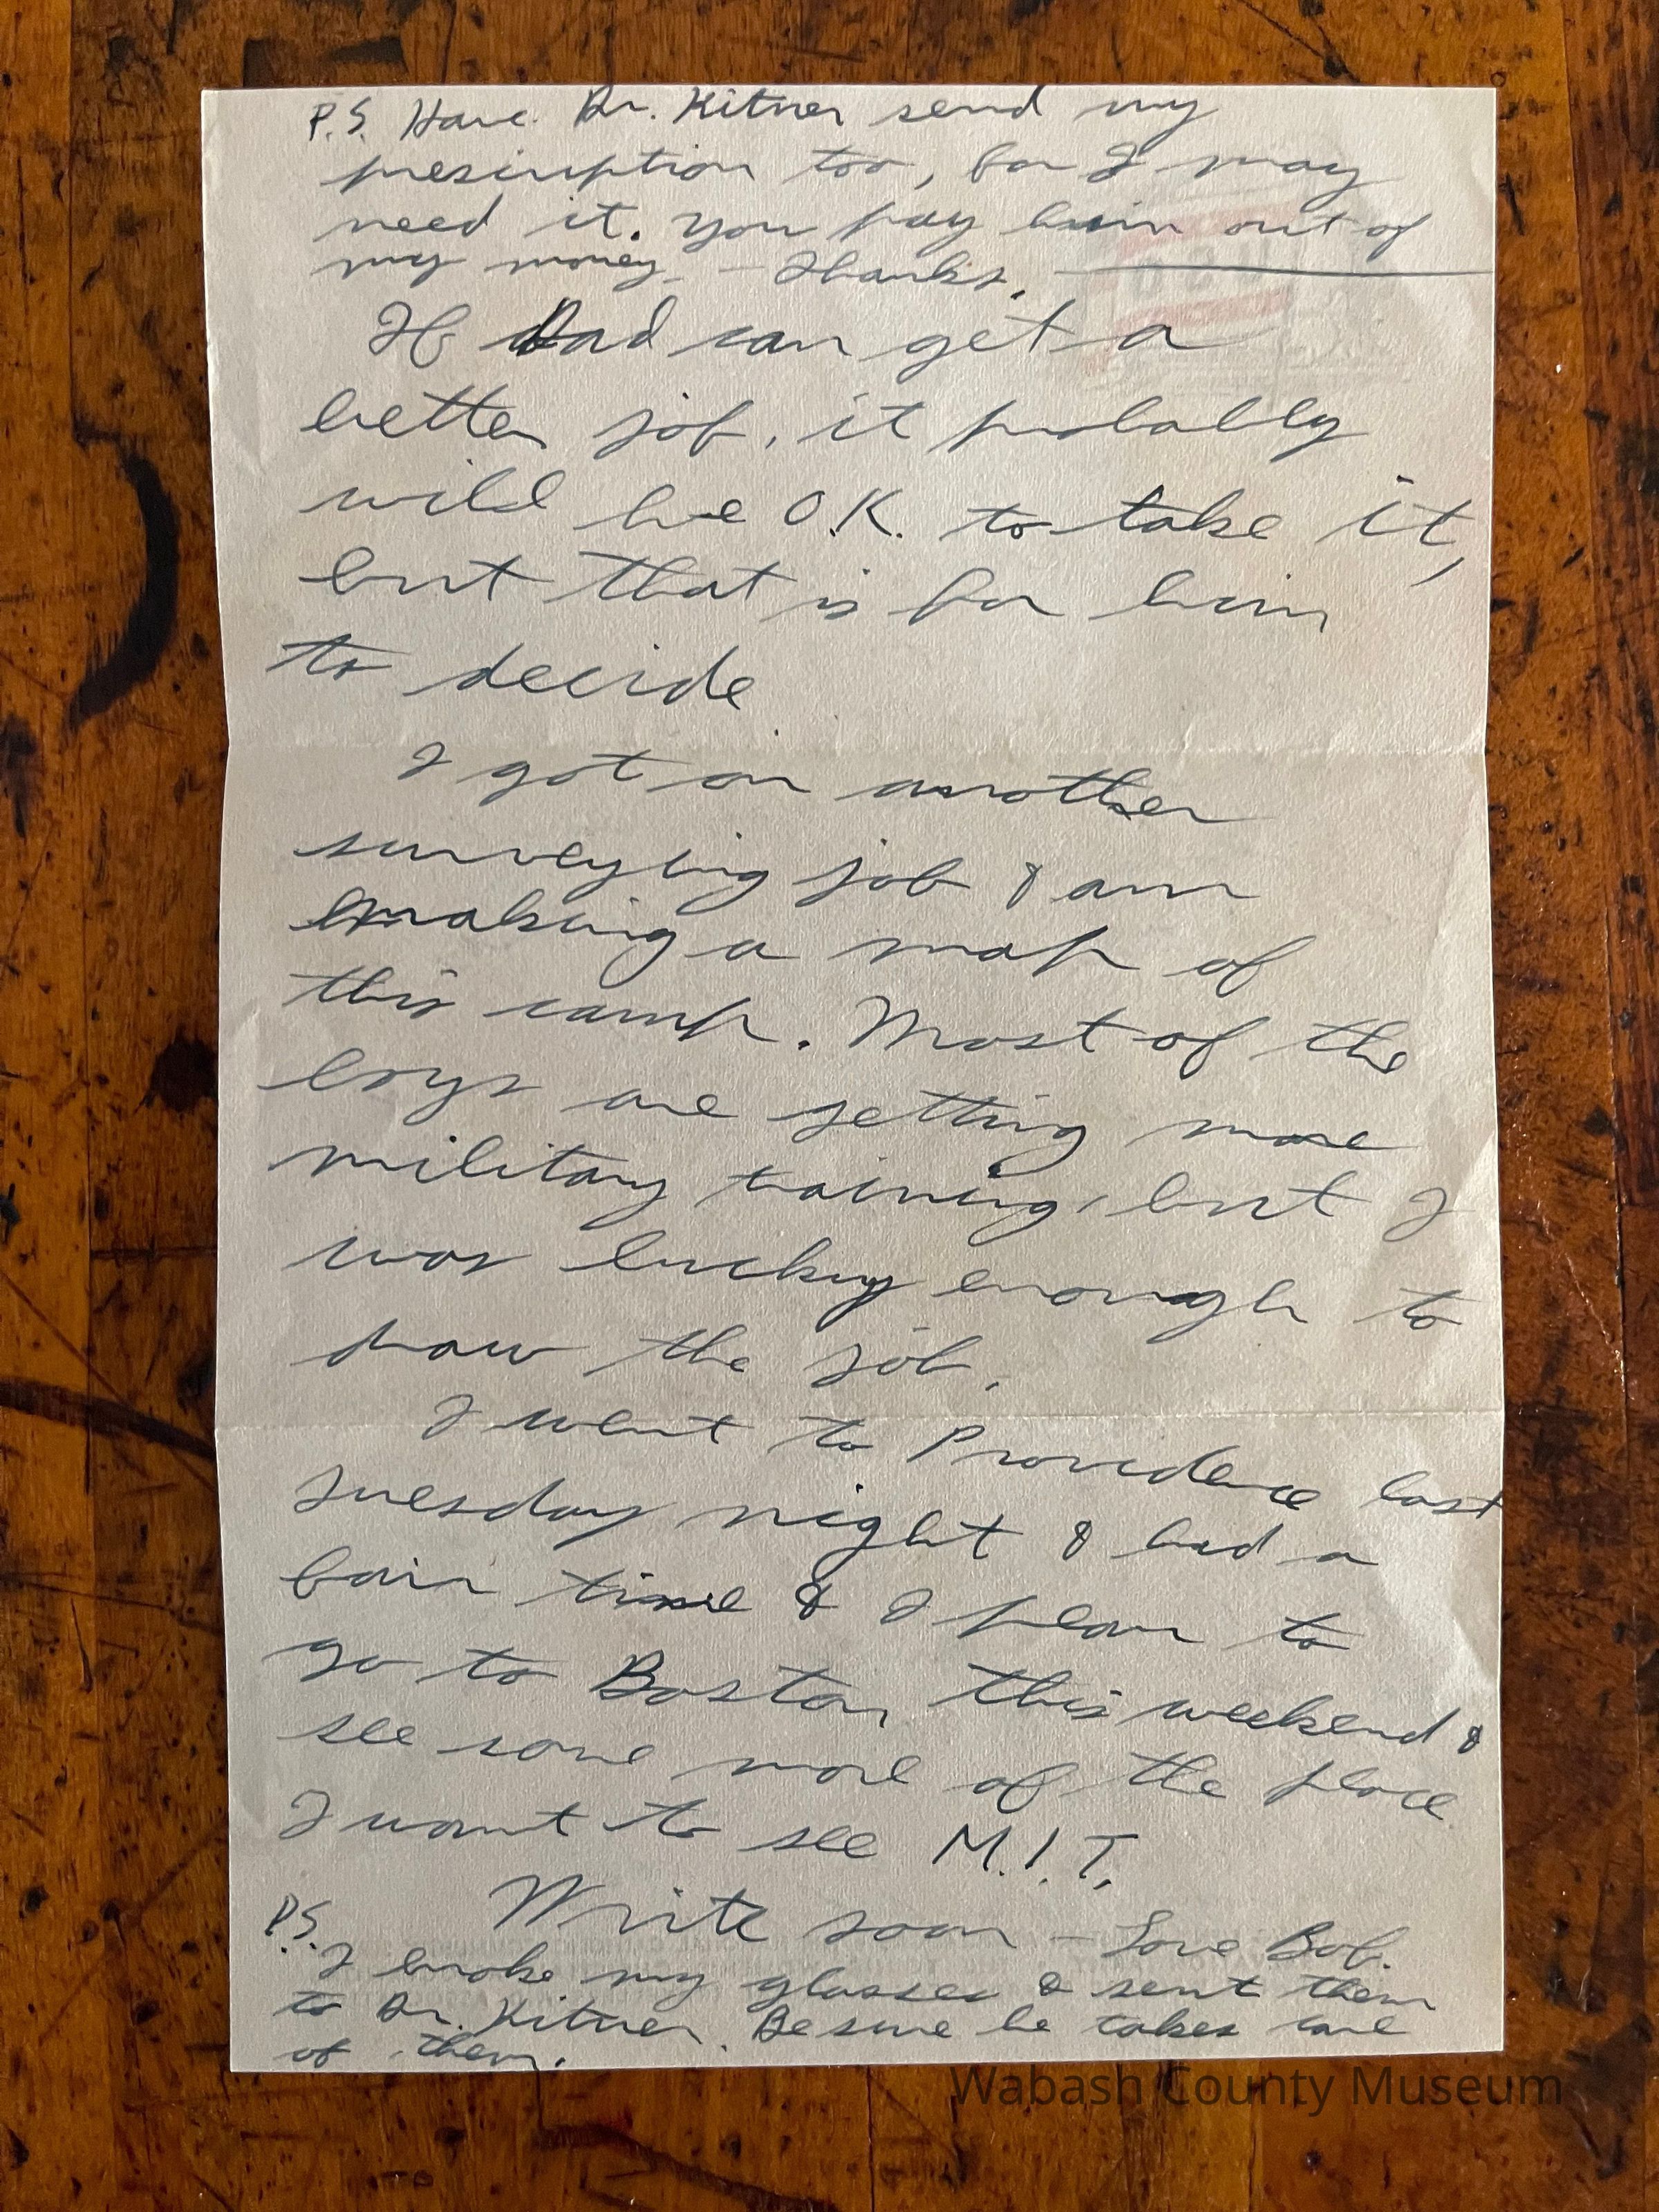 P.S. Have Dr. Kitner send my
presciuption too, for I may
need it. You pay him out of
my money. — Thanks.
If Dad can get a
better job, it probably
will be O.K. to take it,
but that is for him
to decide
I got on another
surveying job & am
making a map of
this camp. Most of the
boys are getting more
military training, but I
was lucky enough to
draw the job.
I went to Providence last
Tuesday night & had a
fair time & I plan to
go to Boston this weekend &
see some more of the place
I want to see M.I.T.
Write soon — Love Bob.
P.S.
I broke my glasses & sent them
to Dr. Kitner. Be sure he takes care
of them.
Wabash County Museum